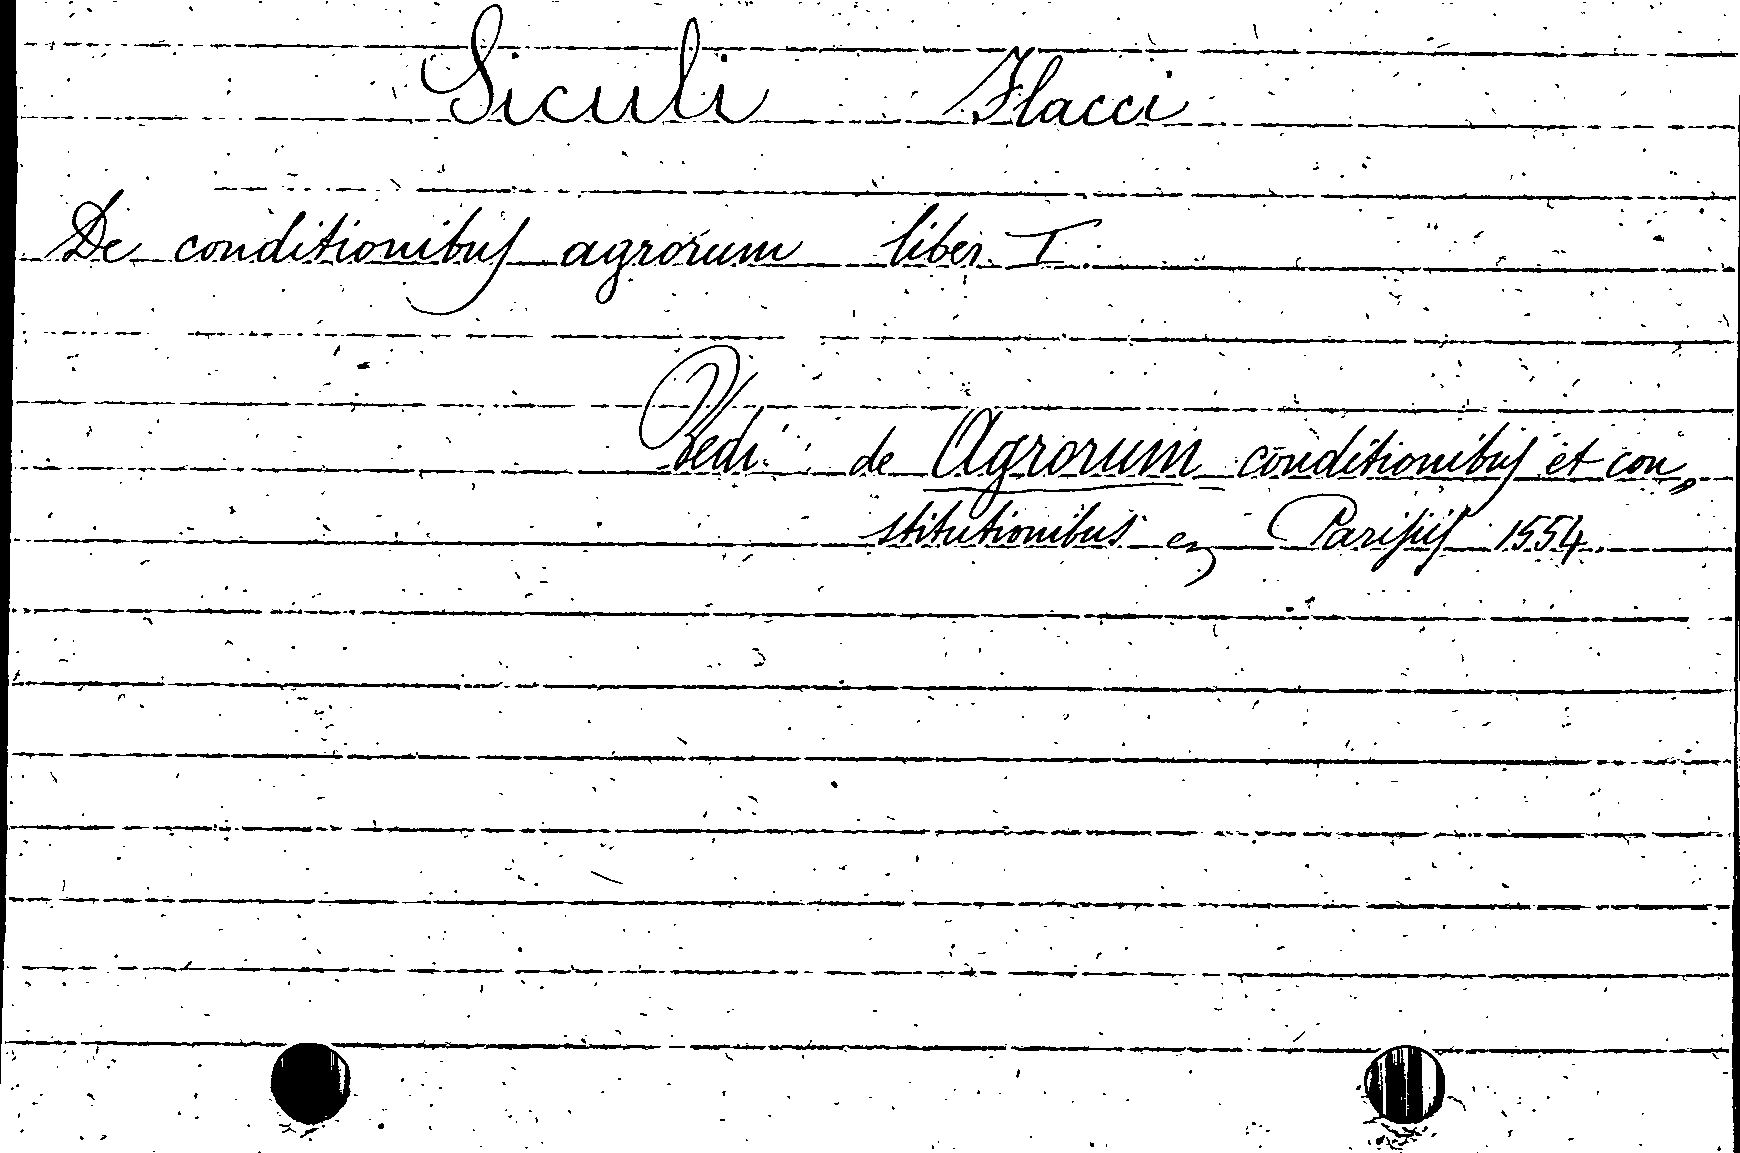 Siculi Flacci
De conditionibus agrorum liber I.
Vedi: de Agrorum conditionibus et con„
stitutionibus Parisiis 1554.